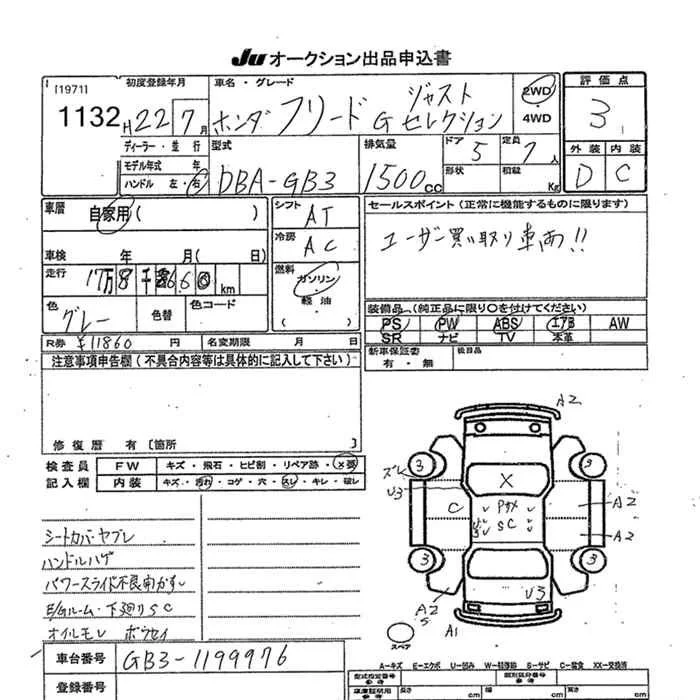 Ju オークション出品申込書
[1971]
1132
初度登録年月
H22年7月
車名・グレード
ホンダ フリード G ジャストセレクション
2WD
・
4WD
評価点
3
外装 内装
D C
ディーラー・並行
モデル年式 年
ハンドル 左・右
型式
DBA-GB3
排気量
1500cc
ドア
5
定員
7人
形状
積載
Kg
車歴
自家用( )
車検 年 月( 日)
走行
km
色
グレー
色替
色コード
シフト
AT
冷房
AC
燃料
ガソリン
軽油
( )
セールスポイント(正常に機能するものに限ります)
ユーザー買い取り車両!!
装備品(純正品に限り○を付けてください)
PS PW ABS エアB AW
SR ナビ TV 本革
新車保証書
有・無
後日品
R券 ¥11860 円
名変期限 月 日
注意事項申告欄(不具合内容等は具体的に記入して下さい)
修復歴 有〔箇所 〕
検査員
記入欄
FW キズ・飛石・ヒビ割・リペア跡・X要
内装 キズ・汚れ・コゲ・穴・スレ・キレ・破レ
シートカバーヤブレ
ハンドルハゲ
パワースライド不良
E/Gルーム・下廻りSC
オイルモレ
A2
ズレ
3
3
U3
X
C
SC
A2
A2
3
3
U3
A2
S
A1
スペア
A-キズ E-エクボ U-凹み W-補修跡 S-サビ C-腐食 XX-交換済
車台番号
GB3-1199976
登録番号
型式指定番号
類別区分番号
長さ cm
幅 cm
高さ cm